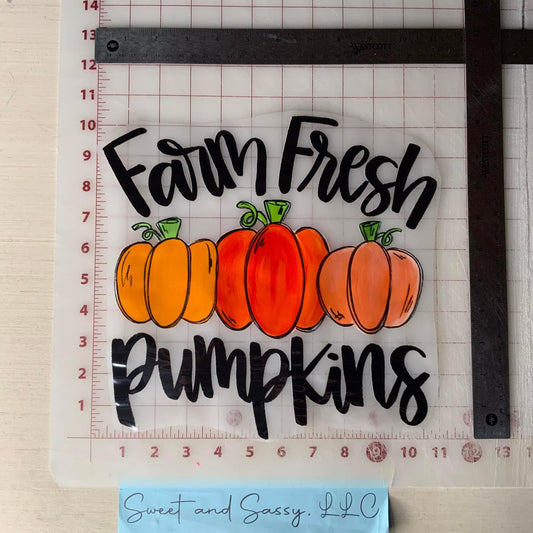 14
13
12
11
10
9
8
7
6
5
4
3
2
1
WESTCOTT
WESTCOTT
Farm Fresh
pumpkins
1 2 3 4 5 6 7 8 9 10 11 12 13
Sweet and Sassy, LLC